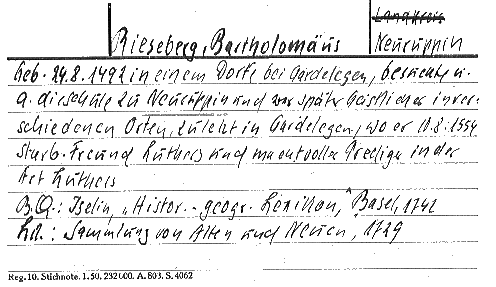 Landkreis
Rieseberg, Bartholomäus Neuruppin
Geb. 24.8.1492 in einem Dorfe bei Gardelegen, besuchte u.
a. die Schule zu Neuruppin und war später Geistlicher in ver-
schiedenen Orten, zuletzt in Gardelegen, wo er 10.8.1554
starb. Freund Luthers und machtvoller Prediger in der
Art Luthers
B.Q.: Iselin, „Histor.-geogr. Lexikon," Basel, 1742
: Sammlung von Alten und Neuen, 1729
Reg. 10. Stichnote. 1. 50. 232000. A. 803. S. 4062